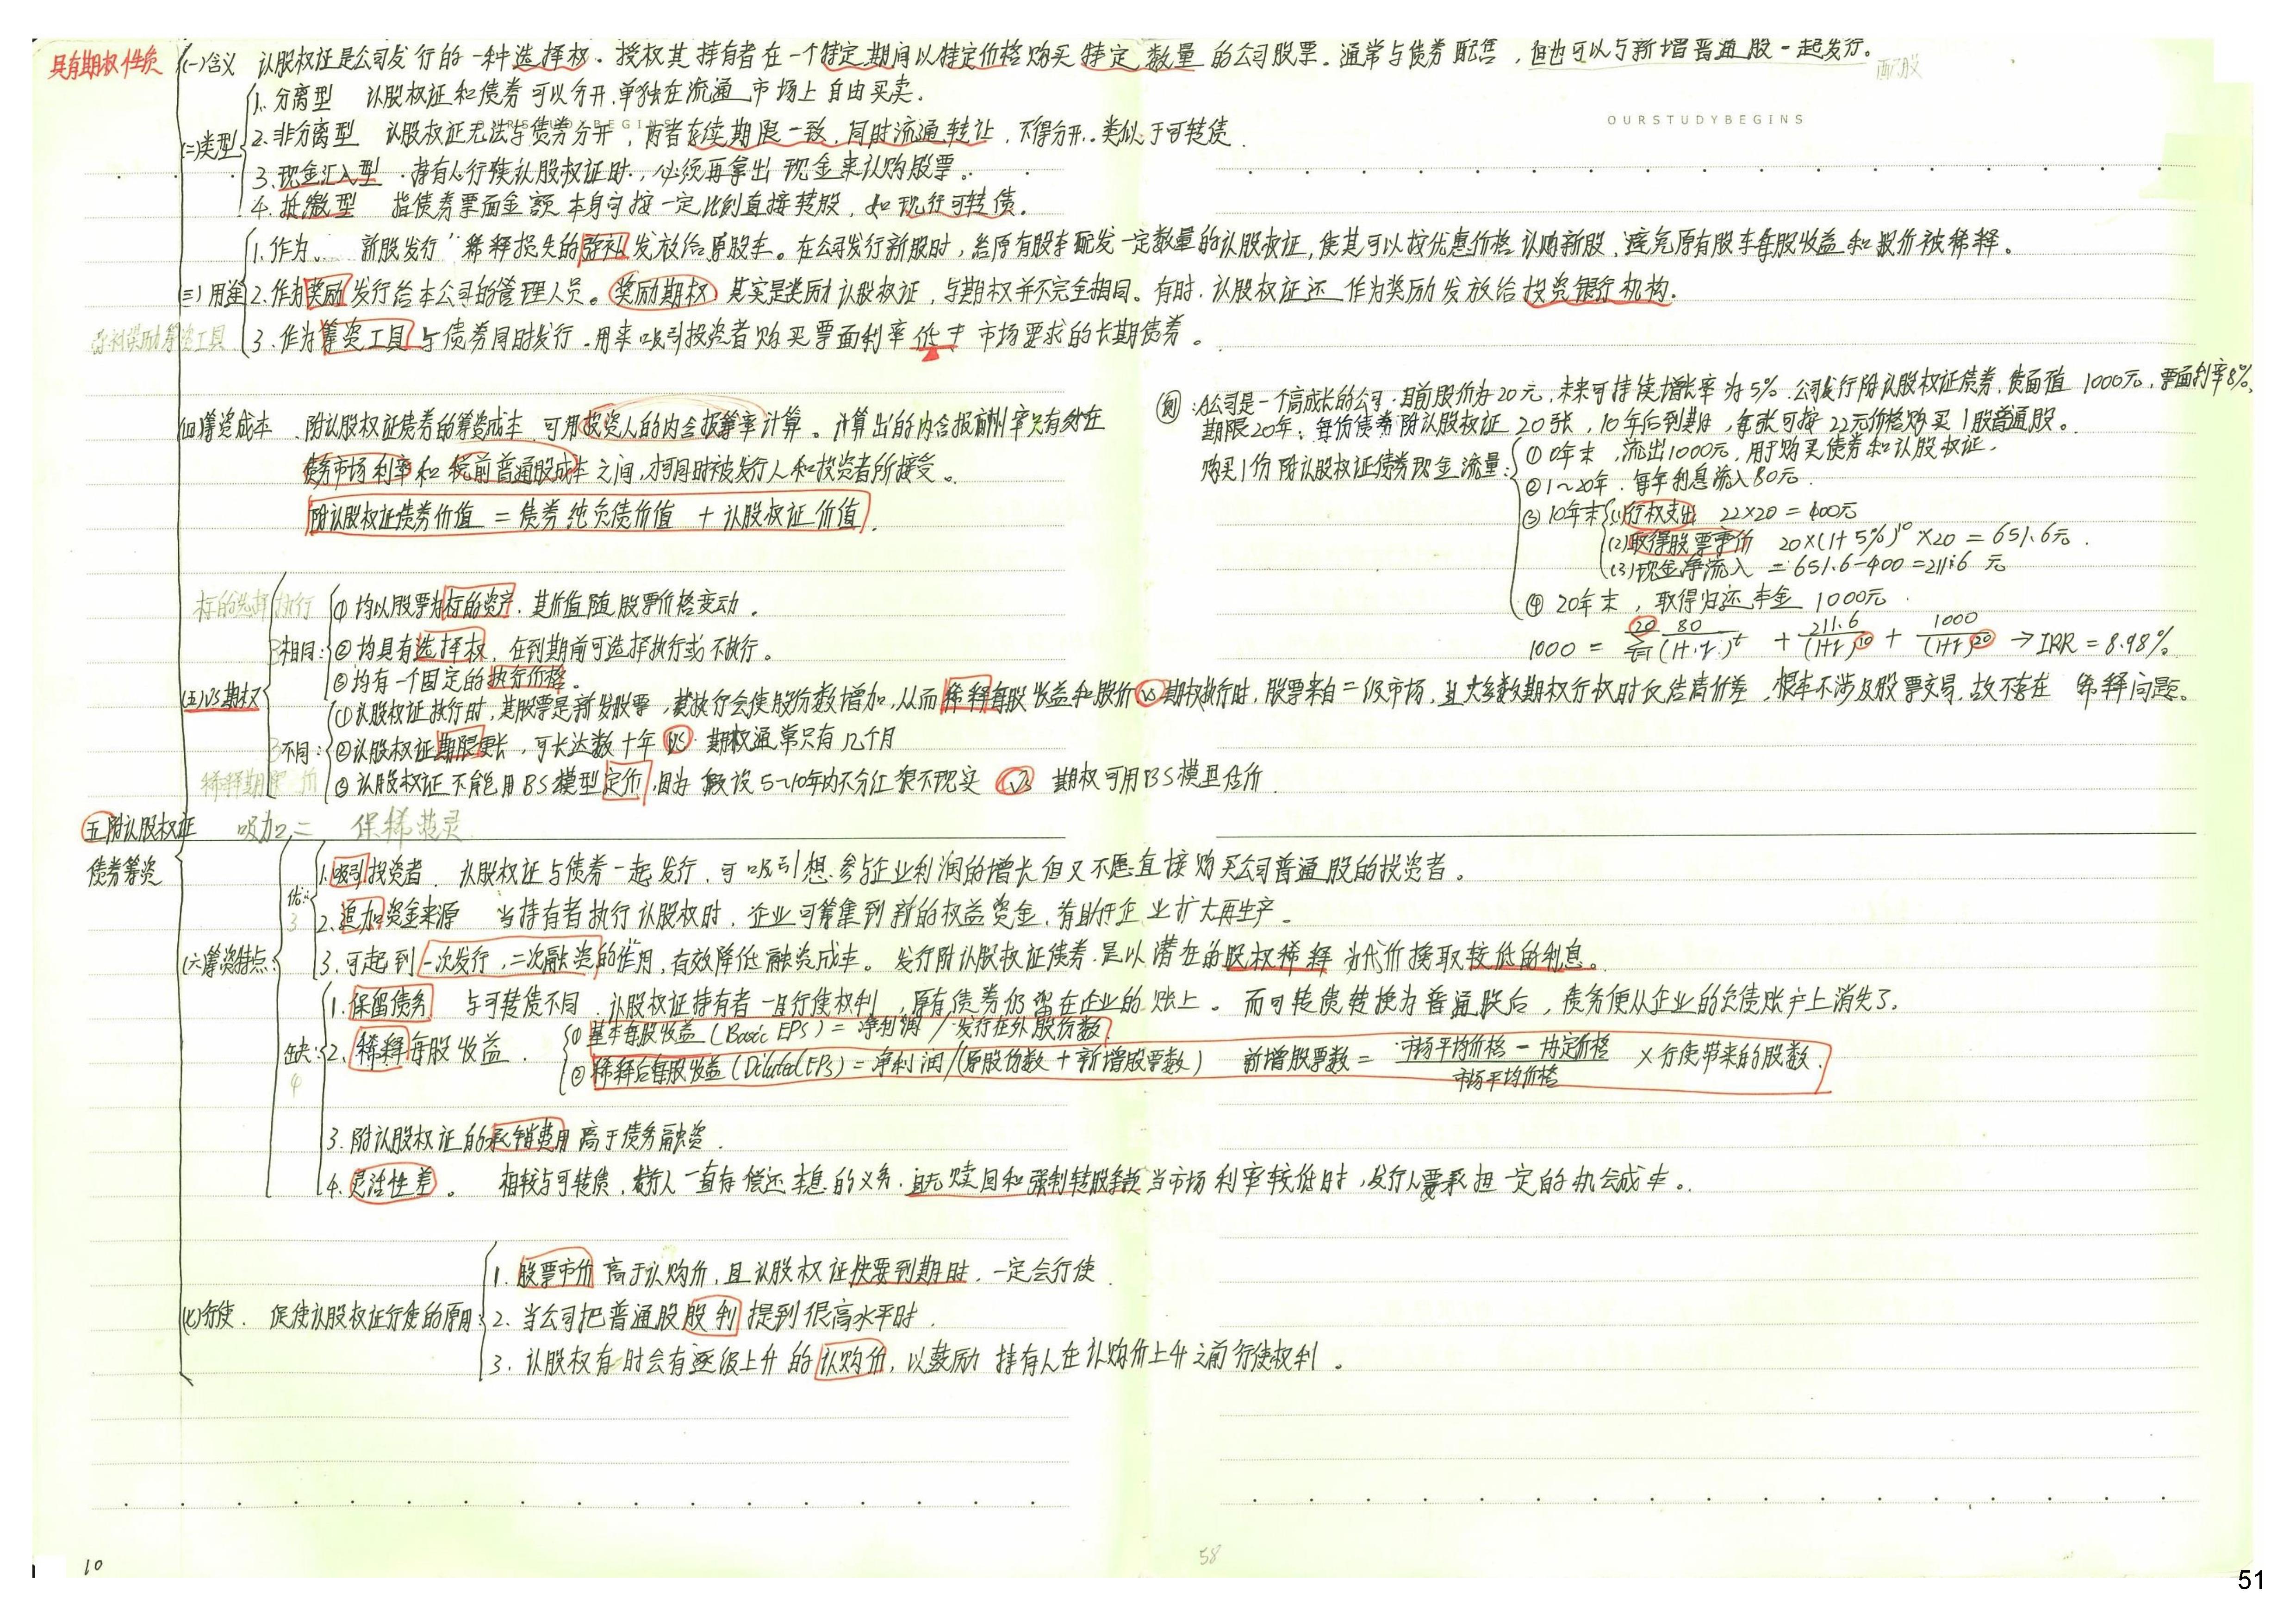 具有期权性质
(一)含义 认股权证是公司发行的一种选择权。授权其持有者在一个特定期间以特定价格购买特定数量的公司股票。通常与债券配售，但也可以与新增普通股一起发行。
配股
OURSTUDYBEGINS
OURSTUDYBEGINS
(二)类型
1. 分离型 认股权证和债券可以分开，单独在流通市场上自由买卖。
2. 非分离型 认股权证无法与债券分开，两者存续期限一致，同时流通转让，不得分开。类似于可转债.
3. 现金汇入型 持有人行使认股权证时，必须再拿出现金来认购股票。
4. 抵缴型 指债券票面金额本身可按一定比例直接转股，如现行可转债.
(三)用途
1. 作为 新股发行 稀释损失的弥补发放给原股东。在公司发行新股时，给原有股东配发一定数量的认股权证，使其可以按优惠价格认购新股，避免原有股东每股收益和股价被稀释。
2. 作为奖励发行给本公司的管理人员。奖励期权 其实是奖励认股权证，与期权并不完全相同。有时，认股权证还作为奖励发放给投资银行机构.
弥补奖励筹资工具
3. 作为筹资工具 与债券同时发行，用来吸引投资者购买票面利率低于市场要求的长期债券。
(四)筹资成本 附认股权证债券的筹资成本 可用投资人的内含报酬率计算。计算出的内含报酬率只有处在
债务市场利率和税前普通股成本之间，才可同时被发行人和投资者所接受。
附认股权证债券价值 = 债券纯负债价值 + 认股权证价值.
例：A公司是一个高成长的公司，目前股价为20元，未来可持续增长率为5%. 公司发行附认股权证债券，债面值1000元，票面利率8%,
期限20年，每份债券附认股权证20张，10年后到期，每张可按22元价格购买1股普通股。
购买1份附认股权证债券现金流量：
① 0年末，流出1000元，用于购买债券和认股权证.
② 1~20年，每年利息流入80元.
③ 10年末 (1)行权支出 22×20=400元
(2)取得股票市价 20×(1+5%)^10×20=651.6元.
(3)现金净流入 =651.6-400=211.6元
④ 20年末，取得归还本金1000元.
1000 = Σ 80/(1+r)^t + 211.6/(1+r)^10 + 1000/(1+r)^20 → IRR=8.98%.
(五)VS期权
标的选择执行
3相同：
① 均以股票为标的资产，其价值随股票价格变动。
② 均具有选择权，在到期前可选择执行或不执行。
③ 均有一个固定的执行价格。
3不同：
① 认股权证执行时，其股票是新发股票，其执行会使股份数增加，从而稀释每股收益和股价 VS 期权执行时，股票来自二级市场，且大多数期权行权时仅结清价差，根本不涉及股票交易，故不存在稀释问题。
② 认股权证期限更长，可长达数十年 VS 期权通常只有几个月
③ 认股权证不能用BS模型定价，因为假设5~10年内不分红很不现实 VS 期权可用BS模型估价.
稀释期限 价
五附认股权证
债券筹资
吸加2,二 保稀费灵
(六)筹资特点：
优：3
1. 吸引投资者. 认股权证与债券一起发行，可吸引想参与企业利润的增长但又不愿直接购买公司普通股的投资者。
2. 追加资金来源 当持有者执行认股权时，企业可筹集到新的权益资金，有助于企业扩大再生产。
3. 可起到一次发行，二次融资的作用，有效降低融资成本。发行附认股权证债券是以潜在的股权稀释为代价换取较低的利息。
缺：4
1. 保留债务 与可转债不同，认股权证持有者一旦行使权利，原有债券仍留在企业的账上。而可转债转换为普通股后，债务便从企业的负债账户上消失了.
2. 稀释每股收益.
① 基本每股收益(Basic EPS)=净利润/发行在外股份数
② 稀释后每股收益(Diluted EPS)=净利润/(原股份数+新增股票数) 新增股票数=(市场平均价格-协定价格)/市场平均价格×行使带来的股数.
3. 附认股权证的承销费用高于债务融资.
4. 灵活性差。 相较与可转债，发行人一直有偿还本息的义务，且无赎回和强制转股条款当市场利率较低时，发行人要承担一定的机会成本。
(七)行使. 促使认股权证行使的原因：
1. 股票市价高于认购价，且认股权证快要到期时，一定会行使.
2. 当公司把普通股股利提到很高水平时.
3. 认股权有时会有逐级上升的认购价，以鼓励持有人在认购价上升之前行使权利。
10
58
51